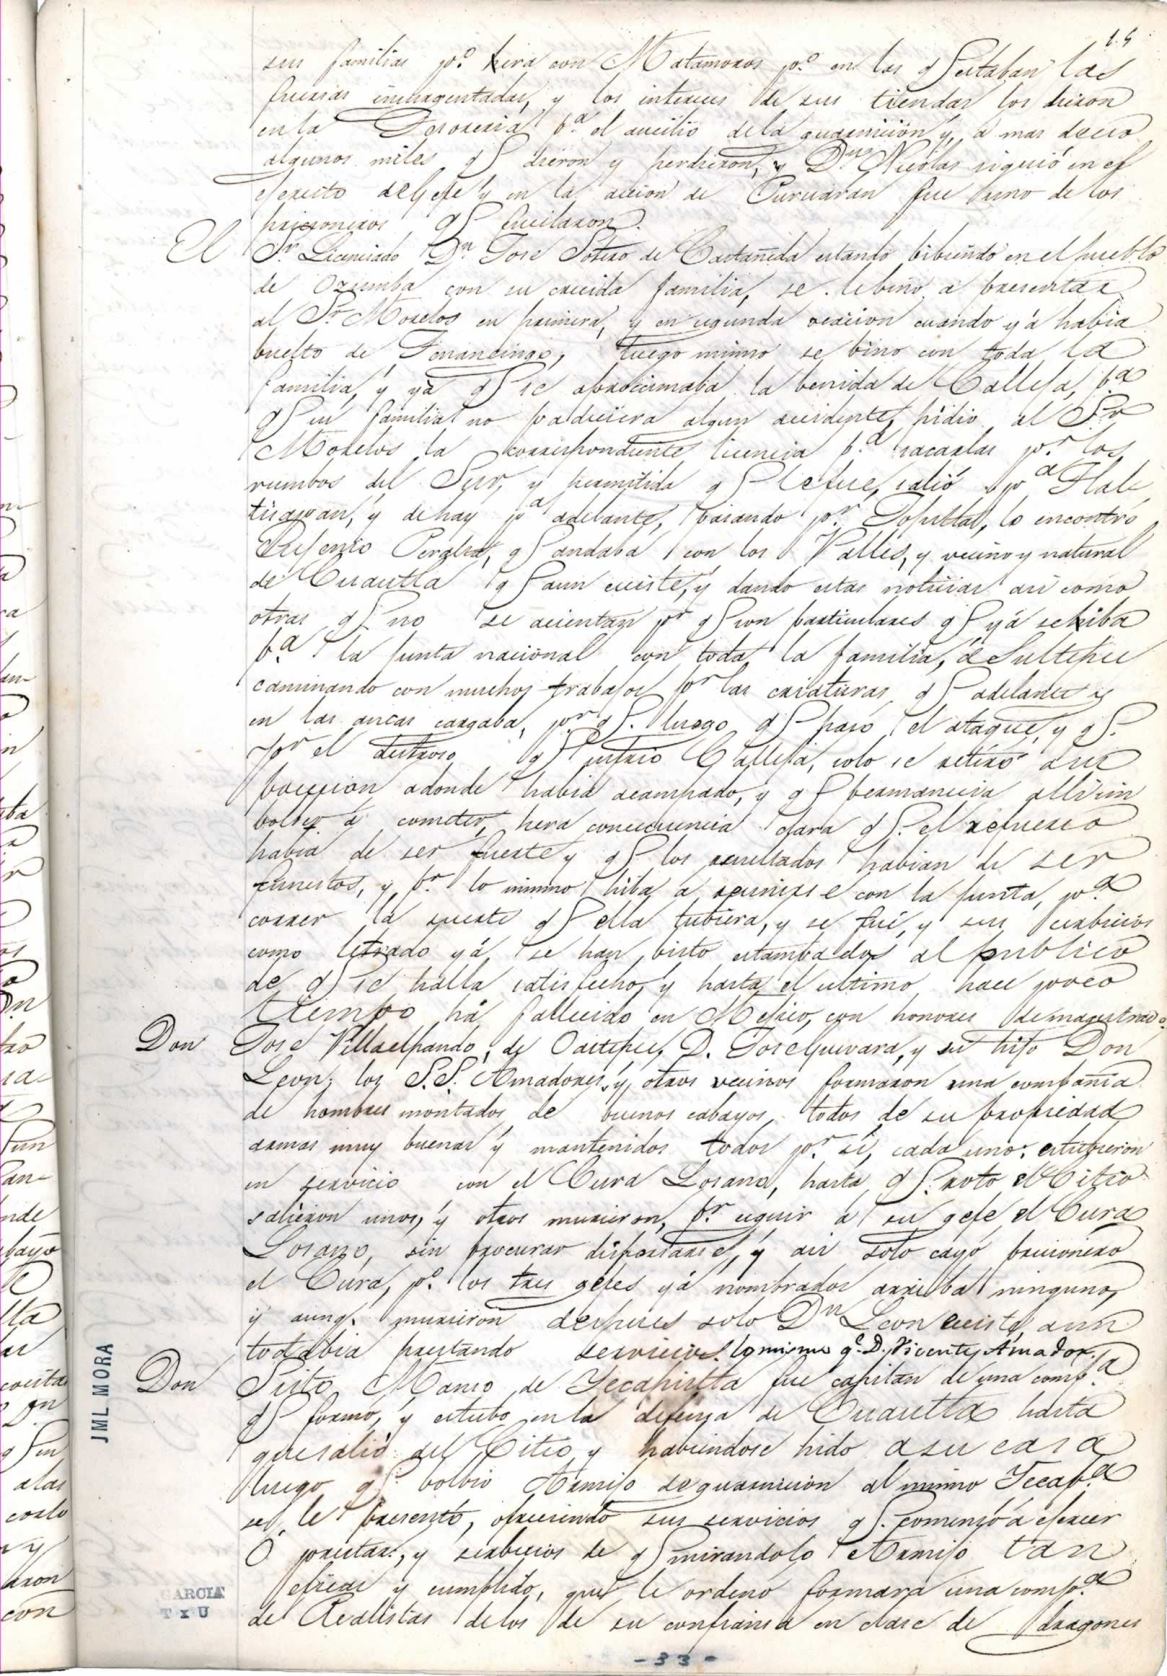 15
sus familias po. hira con Matamoros po. en las q. estaban las
fuersas inchagentadas, y los intereces de sus tiendas los dieron
en la Tesoreria pa. el aucilio dela guarnición y, a mas de eso
algunos miles q. dieron y perdieron, y Dn. Nicolas siguió en el
ejercito de Gefe y en la accion de Puruaran fue uno de los
pricioneros q. fucilaron.
El Sr. Licenciado Dn. José Sotero de Castañeda estando bibiendo en el pueblo
de Ozumba con su crecida familia, se le bino a presentar
al Sr. Morelos en primera, y en segunda ocacion cuando yá habia
buelto de Tenancingo, luego mismo se bino con toda la
familia, y yá q. se abrocsimaba la benida de Calleja, pa.
q. su familia no padeciera algun accidente, pidio al Sr.
Morelos la correspondiente licencia pa. sacarlas pr. los
rumbos del Sur, y permitida q. le fue, salió pa. Tlal
tisapan, y de hay pa. adelante, bajando pr. Jojutla, lo encontro
Eusenio Peralta, q. andaba con los Valles, y vecino y natural
de Cuautla q. aun eciste, y dando estas noticias asi como
otras q. no se acientan pr. q. son particulares q. yá se hiba
pa. la junta nacional con toda la familia, á Sultepec
caminando con muchos trabajos pr. las criaturas q. adelante y
en las ancas cargaba, pr. q. luego q. paso el ataque, y q.
pr. el destroso q. sufrio Calleja, solo se retiro asu
pocicion adonde habia acampado, y q. permanecia alli sin
bolber á cometer, hera concecuencia clara q. el refuerzo
habia de ser fuerte y q. los resultados habian de ser
funestos, y pr. lo mismo hiba a reunirse con la junta, pa.
correr la suerte q. ella tubiera, y se fué, y sus serbicios
como letrado yá, se han bisto estampados al publico
de q. se halla satisfecho, y hasta el ultimo hace poco
tiempo há fallecido en Mejico, con honores demagistrado.
Don José Villaelpando, de Oastepec, D. Jose Guevara, y su hijo Don
Leon, los S.S. Amadores, y otros vecinos formaron una compañia
de hombres montados de buenos cabayos todos de su propiedad
armas muy buenas y mantenidos todos pr. sí, cada uno. estubieron
en servicio con el Cura Losano, hasta q. roto el Citio
salieron unos, y otros murieron, pr. seguir a su gefe el Cura
Losano, sin procurar dispersarse, y asi solo cayó pricionero
el Cura, po. los tres gefes yá nombrados arriba ninguno,
y aunq. murieron despues solo Dn Leon eciste aun
todabia prestando servicios. lo mismo q. D. Vicente Amador.
Don Sisto Manso de Yecapistla fue capitan de una compa.
q. formo, y estubo en la defensa de Cuautla hasta
que salió del Citio y habiendose hido asu casa
luego q. bolbio Armijo de guarnicion al mismo Yecapa.
se le presentó, ofreciendo sus servicios q. comenzó á ejercer
O prestar, y serbicios de q. mirandolo Armijo tan
eficas y cumplido, que le ordeno formara una compa.
de Realistas delos de su confiansa en clase de dragones
JML MORA
GARCIA
TxU
-33-